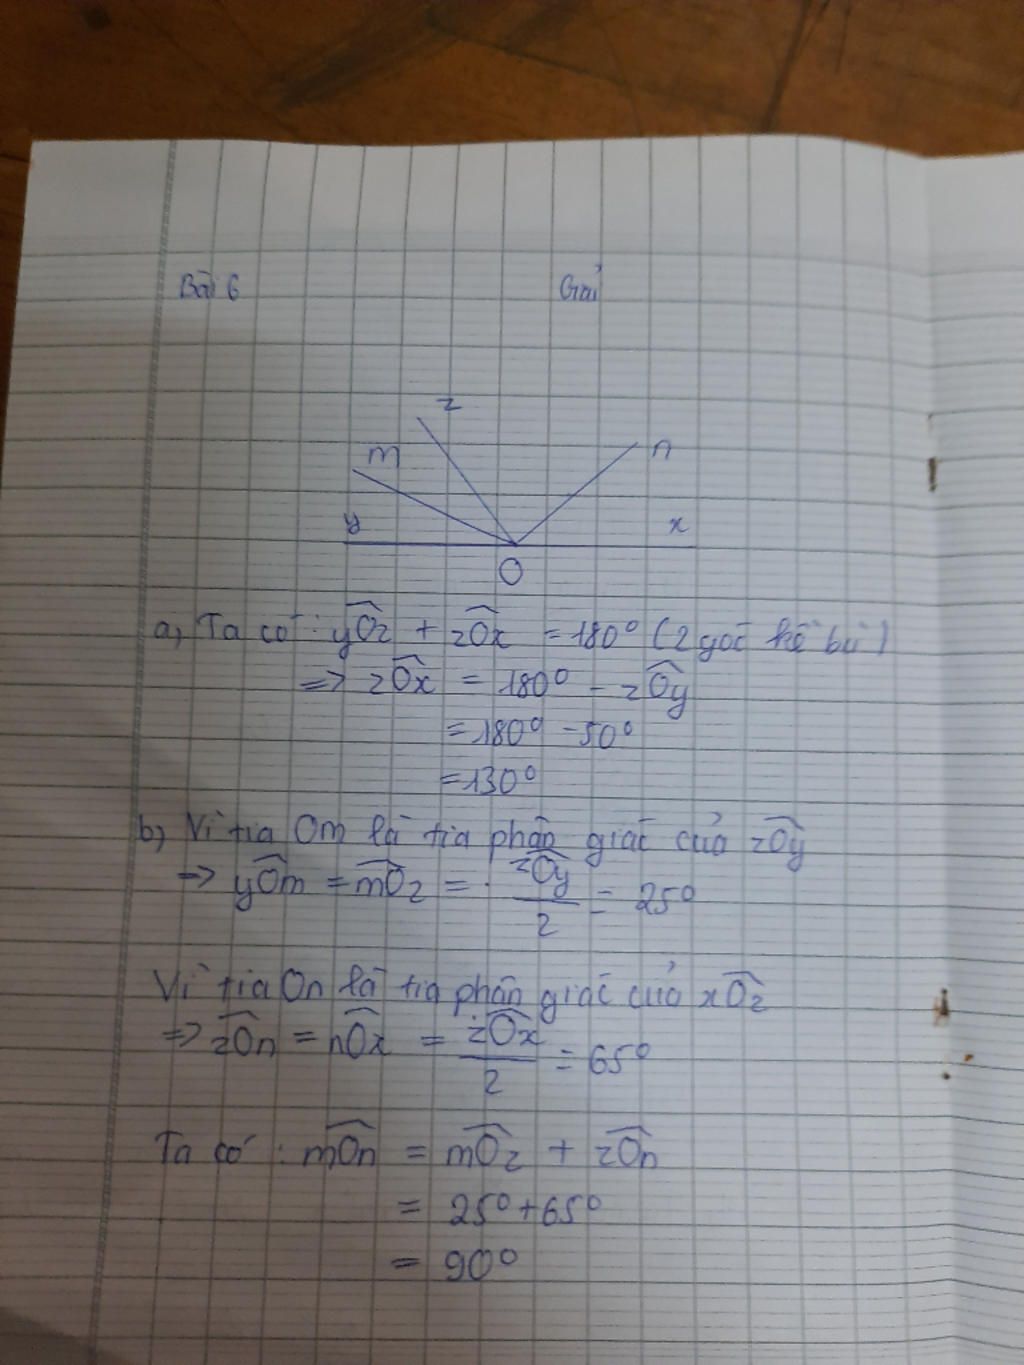 Bài 6 Giải
z
m n
y x
O
a, Ta có : yOz + zOx = 180° (2 góc kề bù)
=> zOx = 180° - zOy
= 180° - 50°
= 130°
b) Vì tia Om là tia phân giác của zOy
=> yOm = mOz = zOy/2 = 25°
Vì tia On là tia phân giác của xOz
=> zOn = nOx = zOx/2 = 65°
Ta có : mOn = mOz + zOn
= 25° + 65°
= 90°